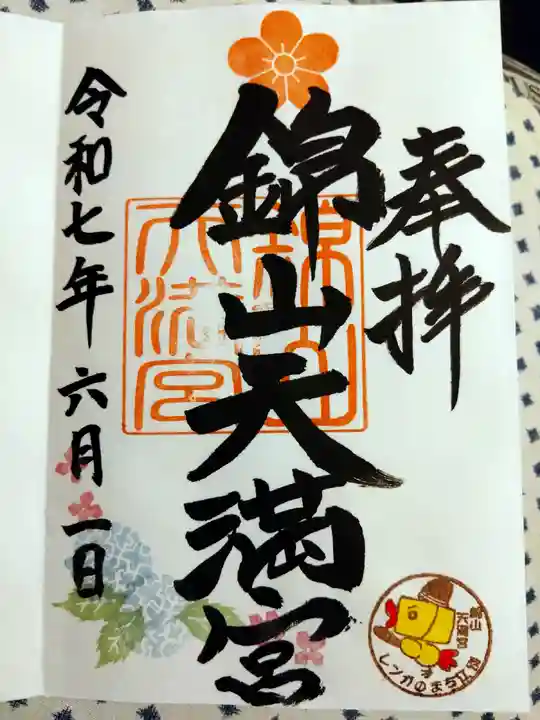 奉拝
錦山天満宮
錦山天満宮
令和七年六月一日
錦山
天満宮
レンガのまち江別